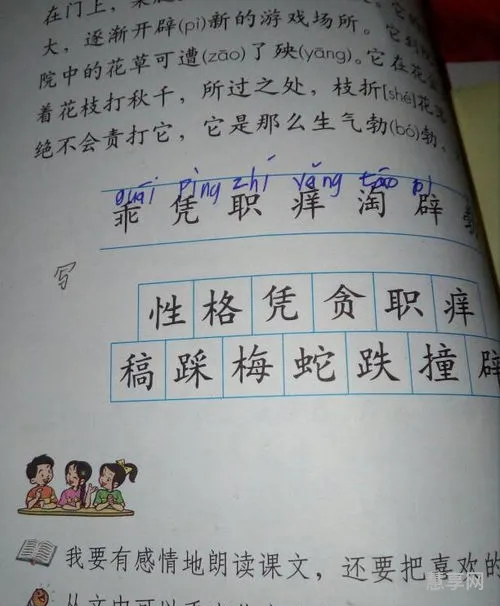 在门上,
大,逐渐开辟(pì)新的游戏场所。它到
院中的花草可遭(zāo)了殃(yāng)。它在花
着花枝打秋千,所过之处,枝折[shé]花
绝不会责打它,它是那么生气勃(bó)勃,
guāi píng zhí yǎng táo pì
乖 凭 职 痒 淘 辟
写
性 格 凭 贪 职 痒
稿 踩 梅 蛇 跌 撞 辟
我要有感情地朗读课文,还要把喜欢的
慧享网